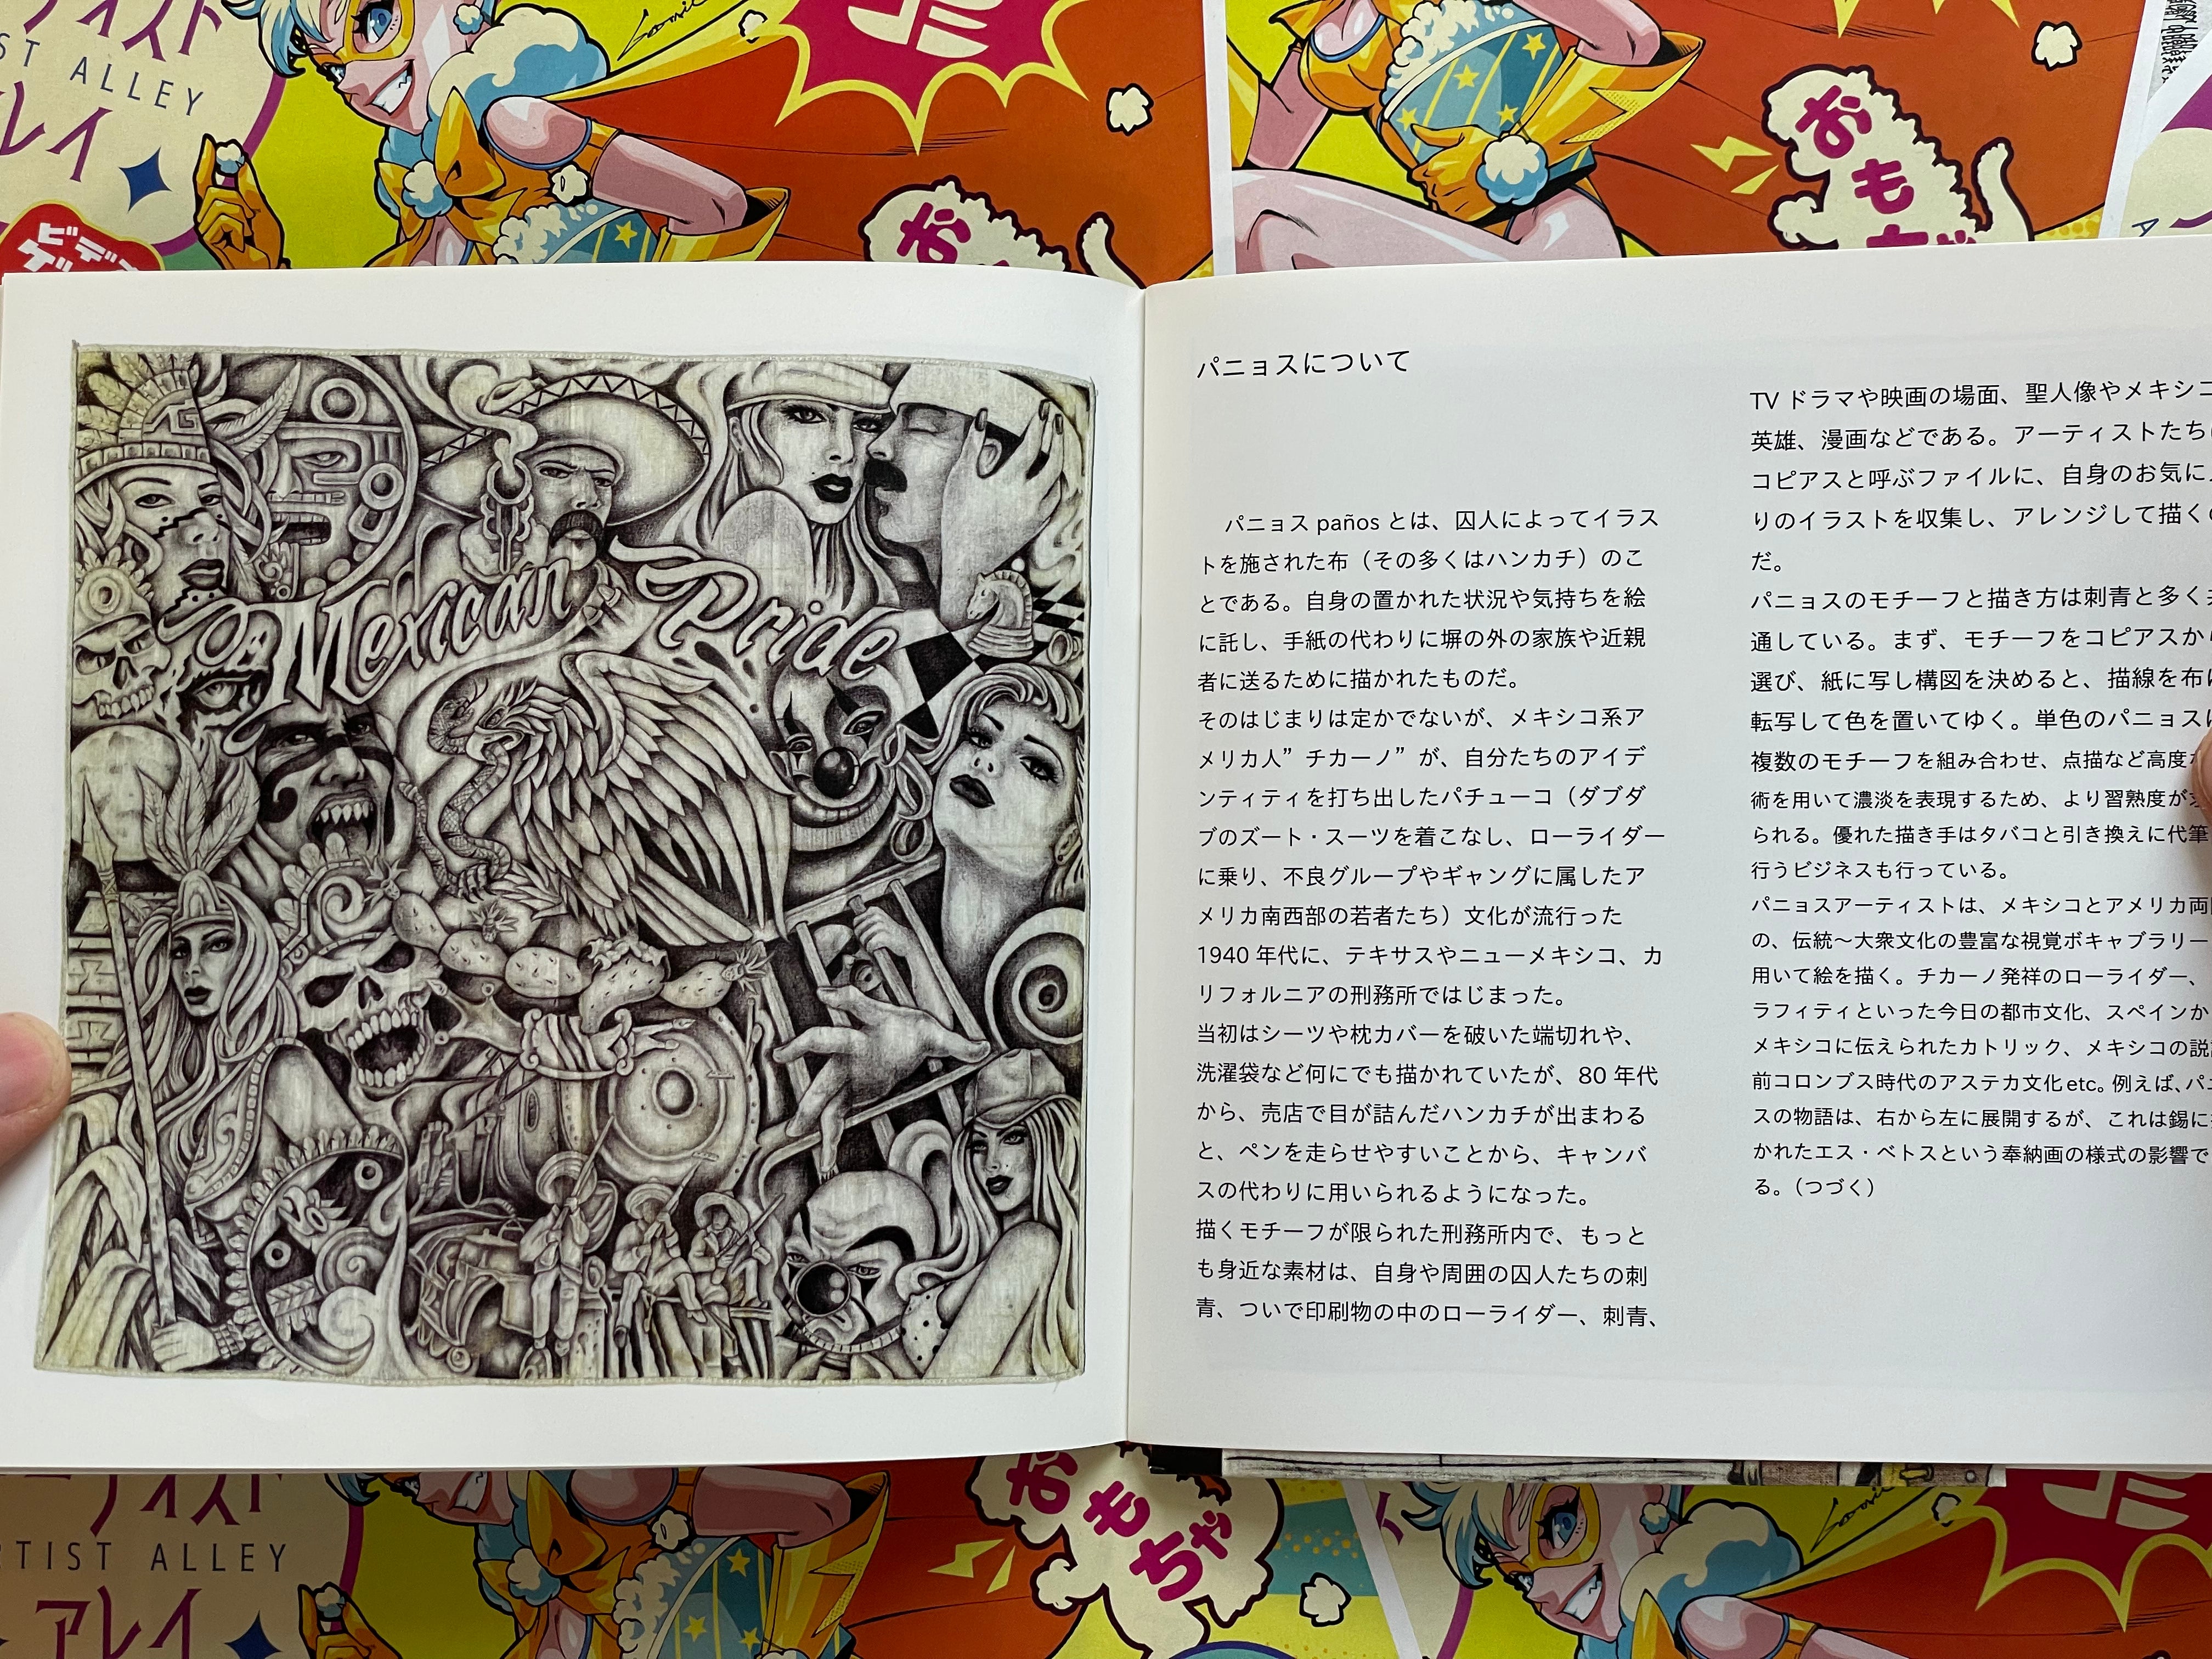 ィスト
ST ALLEY
レイ
ビデ
ゲ
お
お
も
Mexican Pride
パニョスについて
パニョス paños とは、囚人によってイラス
トを施された布（その多くはハンカチ）のこ
とである。自身の置かれた状況や気持ちを絵
に託し、手紙の代わりに塀の外の家族や近親
者に送るために描かれたものだ。
そのはじまりは定かでないが、メキシコ系ア
メリカ人” チカーノ” が、自分たちのアイデ
ンティティを打ち出したパチューコ（ダブダ
ブのズート・スーツを着こなし、ローライダー
に乗り、不良グループやギャングに属したア
メリカ南西部の若者たち）文化が流行った
1940 年代に、テキサスやニューメキシコ、カ
リフォルニアの刑務所ではじまった。
当初はシーツや枕カバーを破いた端切れや、
洗濯袋など何にでも描かれていたが、80 年代
から、売店で目が詰んだハンカチが出まわる
と、ペンを走らせやすいことから、キャンバ
スの代わりに用いられるようになった。
描くモチーフが限られた刑務所内で、もっと
も身近な素材は、自身や周囲の囚人たちの刺
青、ついで印刷物の中のローライダー、刺青、
TV ドラマや映画の場面、聖人像やメキシコ
英雄、漫画などである。アーティストたち
コピアスと呼ぶファイルに、自身のお気に
りのイラストを収集し、アレンジして描く
だ。
パニョスのモチーフと描き方は刺青と多く
通している。まず、モチーフをコピアスか
選び、紙に写し構図を決めると、描線を布
転写して色を置いてゆく。単色のパニョス
複数のモチーフを組み合わせ、点描など高度
術を用いて濃淡を表現するため、より習熟度が
られる。優れた描き手はタバコと引き換えに代筆
行うビジネスも行っている。
パニョスアーティストは、メキシコとアメリカ両
の、伝統〜大衆文化の豊富な視覚ボキャブラリー
用いて絵を描く。チカーノ発祥のローライダー、
ラフィティといった今日の都市文化、スペインか
メキシコに伝えられたカトリック、メキシコの説
前コロンブス時代のアステカ文化 etc。例えば、パ
スの物語は、右から左に展開するが、これは錫に
かれたエス・ベトスという奉納画の様式の影響で
る。（つづく）
ィスト
TIST ALLEY
アレイ
おもちゃ